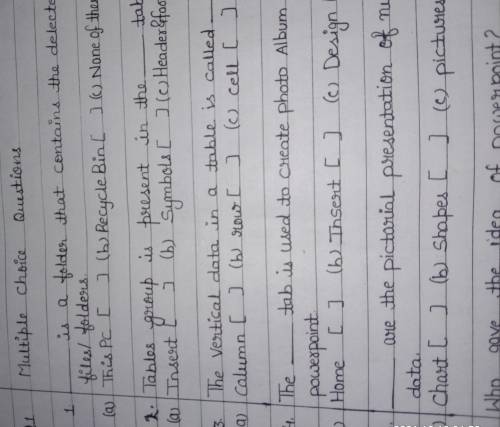 Multiple Choice Questions
1 ___ is a folder that contains the delete
files/folders.
(a) This Pc [ ] (b) Recycle Bin [ ] (c) None of the
2. Tables group is present in the ___ tab
(a) Insert [ ] (b) Symbols [ ] (c) Header &
3. The vertical data in a table is called ___
a) Column [ ] (b) row [ ] (c) cell [ ]
The ___ tab is used to create photo Album
powerpoint.
) Home [ ] (b) Insert [ ] (c) Design
___ are the pictorial presentation of nu
data.
) Chart [ ] (b) shapes [ ] (c) pictures
Who gave the idea of powerpoint?